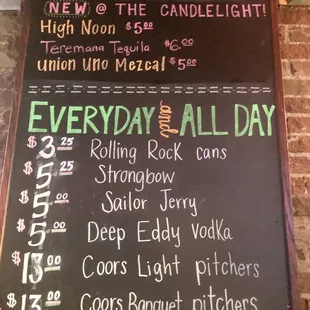 NEW @ THE CANDLELIGHT!
High Noon $5.00
Teremana Tequila $6.00
Union Uno Mezcal $5.00
EVERYDAY and ALL DAY
$3.25 Rolling Rock cans
$5.25 Strongbow
$5.00 Sailor Jerry
$5.00 Deep Eddy Vodka
$13.00 Coors Light pitchers
$13.00 Coors Banquet pitchers